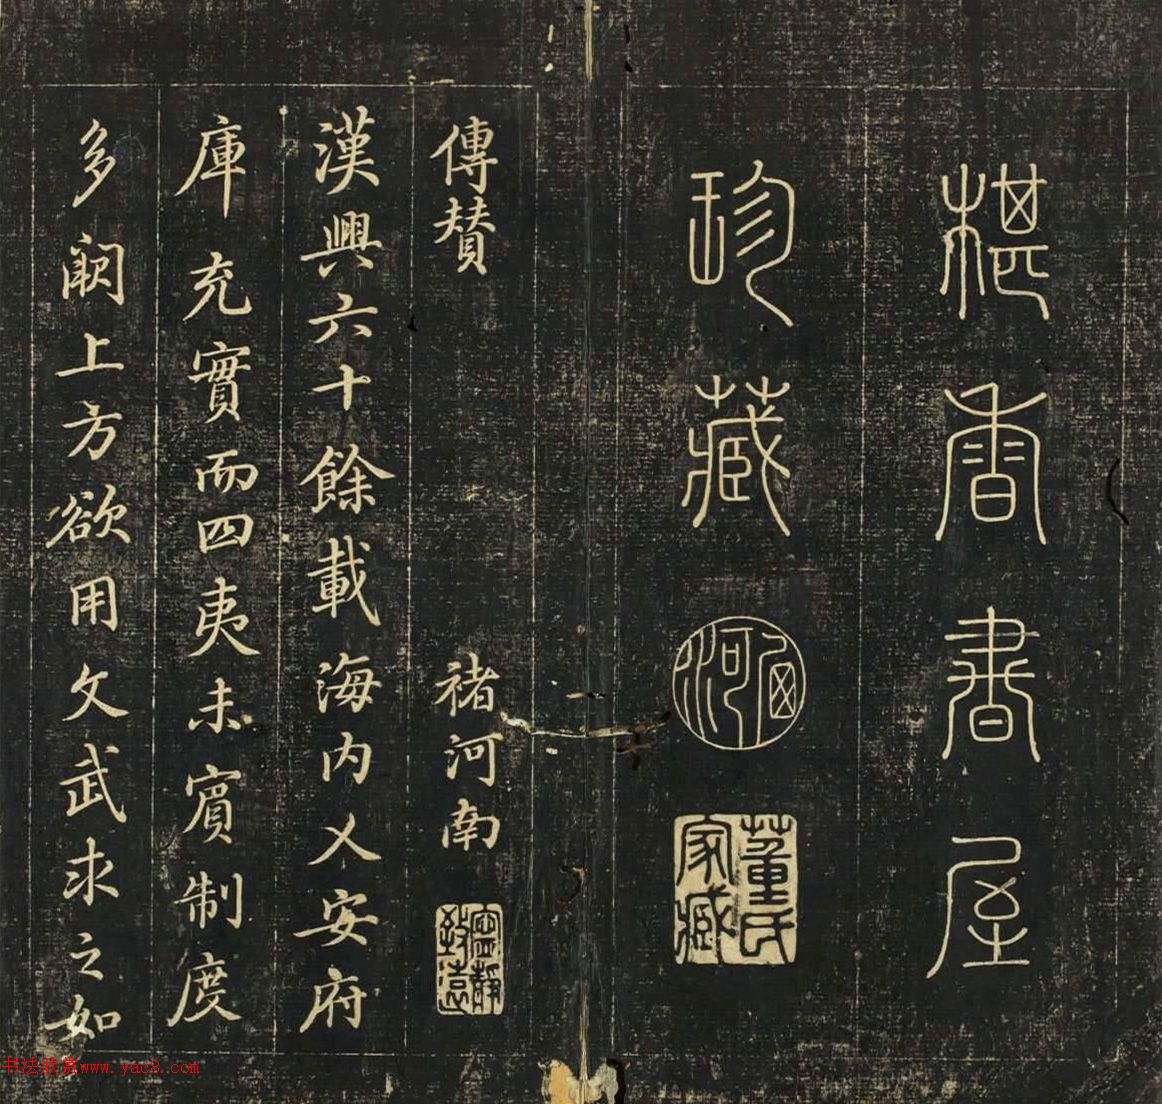 椹香書屋
珍藏
西河
董氏家藏
傳贊 褚河南
寧靜致遠
漢興六十餘載海内乂安府
庫充實而四夷未賓制度
多闕上方欲用文武求之如
书法欣赏www.yac8.com